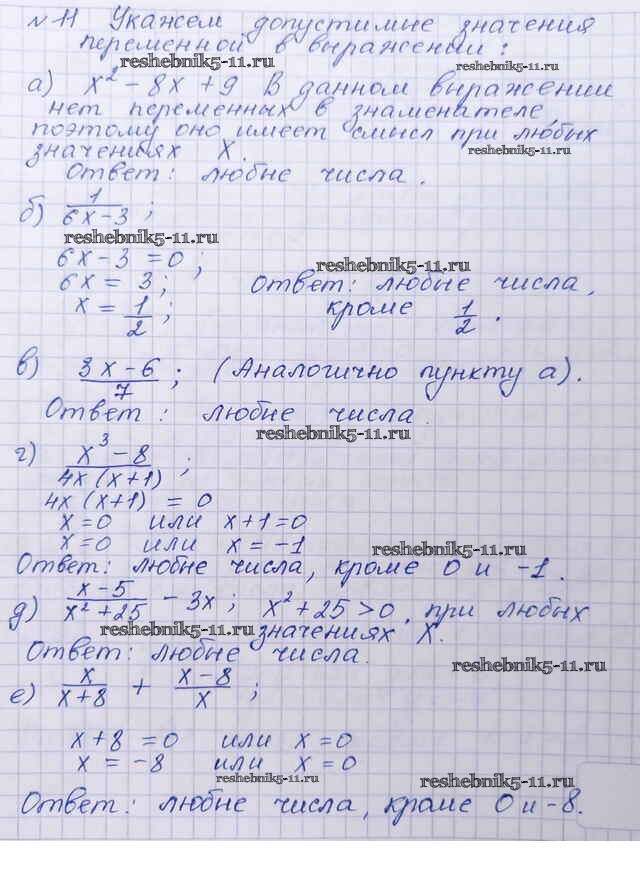 № 11 Укажем допустимые значения
переменной в выражении:
reshebnik5-11.ru
reshebnik5-11.ru
а) x² - 8x + 9 В данном выражении
нет переменных в знаменателе,
поэтому оно имеет смысл при любых
значениях X.
reshebnik5-11.ru
Ответ: любые числа.
б) 1/(6x-3);
reshebnik5-11.ru
6x - 3 = 0;
reshebnik5-11.ru
6x = 3; Ответ: любые числа,
x = 1/2; кроме 1/2.
в) (3x-6)/7; (Аналогично пункту а).
Ответ: любые числа.
reshebnik5-11.ru
г) (x³-8)/(4x(x+1));
4x(x+1) = 0
x=0 или x+1=0
x=0 или x = -1
reshebnik5-11.ru
Ответ: любые числа, кроме 0 и -1.
д) (x-5)/(x²+25) - 3x; x²+25>0, при любых
reshebnik5-11.ru
значениях X.
Ответ: любые числа.
reshebnik5-11.ru
е) x/(x+8) + (x-8)/x;
x+8 = 0 или x = 0
x = -8 или x = 0
reshebnik5-11.ru
reshebnik5-11.ru
Ответ: любые числа, кроме 0 и -8.